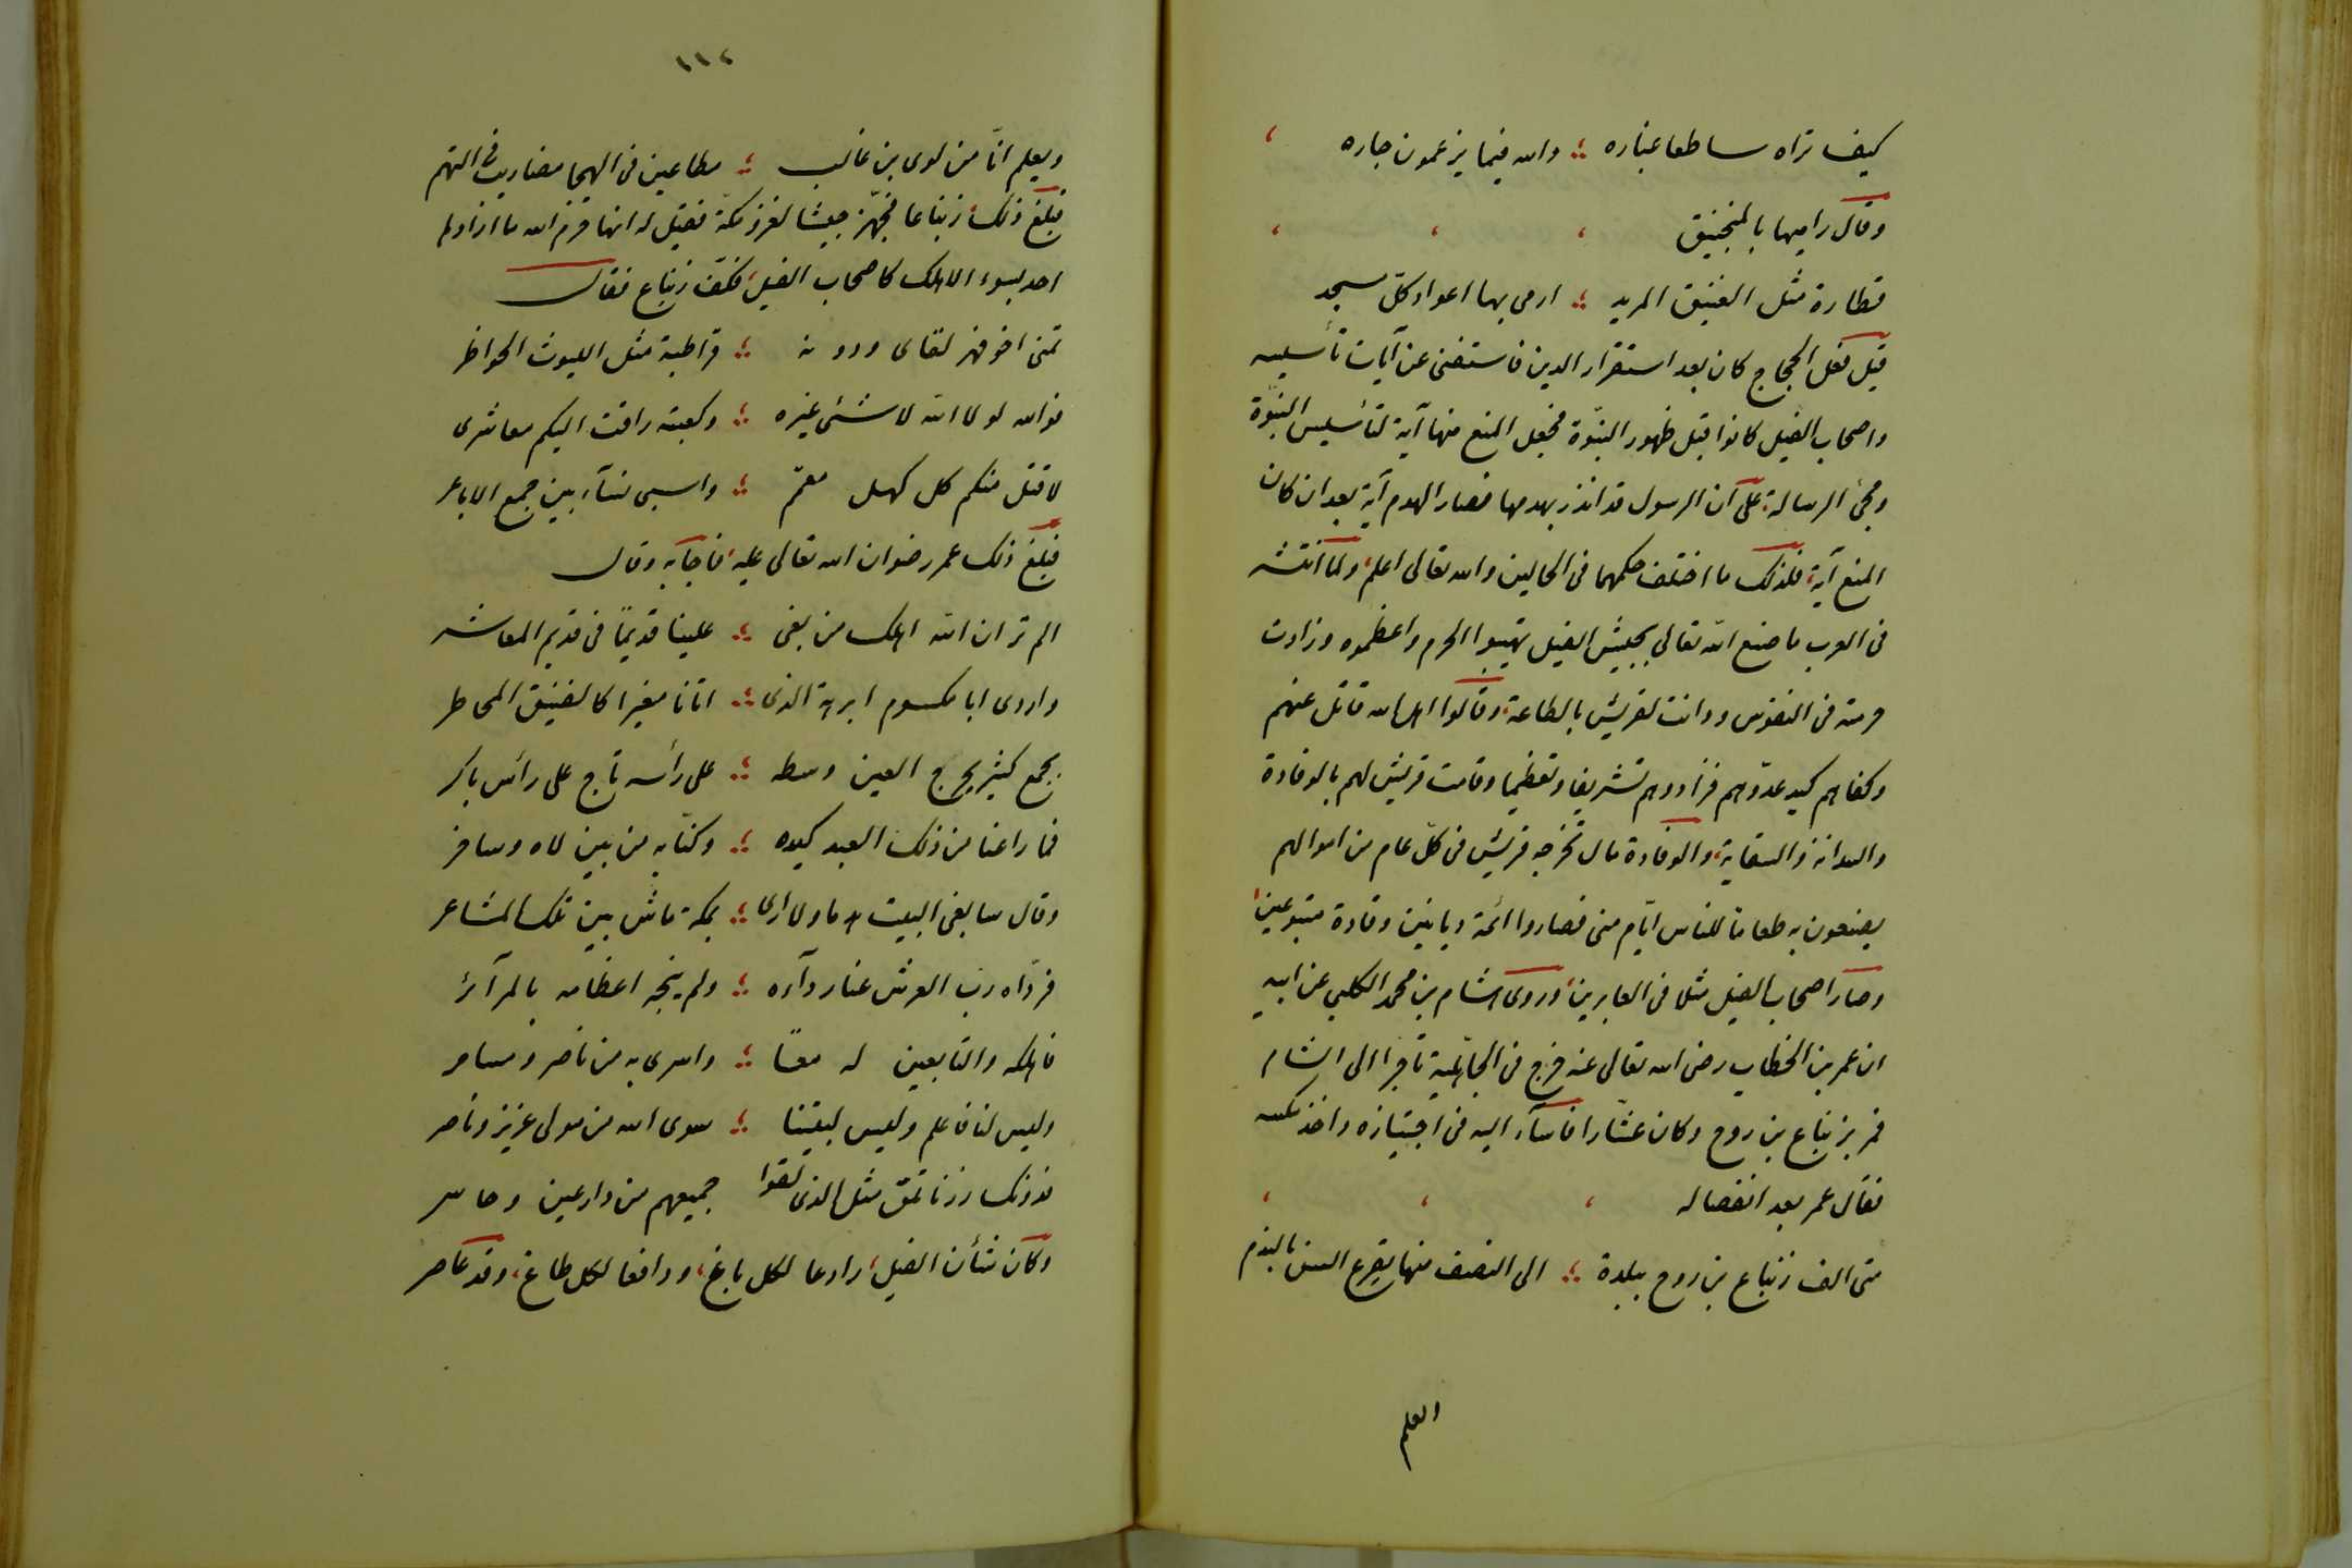 كيف تراه ساطعا غباره ؛ والله فيما يزعمون جاره
وقال راميها بالمنجنيق
قطارة مثل الفنيق المزبد ؛ ارمى بها اعواد كل مسجد
قيل فعل الحجاج كان بعد استقرار الدين فاستغنى عن آيات تأسيسه
واصحاب الفيل كانوا قبل ظهور النبوّة فجعل المنع منها آية لتأسيس النبوّة
ومجئ الرسالة، على ان الرسول قد انذر بهدمها فصار الهدم آية بعد ان كان
المنع آية، فلذلك ما اختلف حكمهما فى الحالين والله تعالى اعلم، ولما انتشر
فى العرب ما صنع الله تعالى بجيش الفيل تهيبوا الحرم واعظموه وزادت
حرمته فى النفوس ودانت لقريش بالطاعة، وقالوا اهل الله قاتل عنهم
وكفاهم كيد عدوّهم فزادوهم تشريفا وتعظيما وقامت قريش لهم بالوفادة
والسدانة والسقاية، والوفادة مال تخرجه قريش فى كل عام من اموالهم
يصنعون به طعاما للناس ايّام منى فصاروا ائمة ديانين وقادة متبوعين،
وصار اصحاب الفيل مثلا فى الغابرين، وروى هشام بن محمد الكلبى عن ابيه
ان عمر بن الخطاب رضى الله تعالى عنه خرج فى الجاهلية تاجرا الى الشام
فمر بزنباع بن روح وكان عشارا فاسآء اليه فى اجتيازه واخذ مكسه
فقال عمر بعد انفصاله
متى الف زنباع بن روح ببلدة ؛ الى النصف منها يقرع السن بالندم
العلم
١١٢
ويعلم انّا من لوى بن غالب ؛ مطاعين فى الهيجا مضاريب فى التهم
فبلغ ذلك زنباعا فجهّز جيشا لغزو مكّة فقيل له انها حرم الله ما ارادها
احد بسوء الا هلك كاصحاب الفيل، فكفّ زنباع فقال
تمنى اخو فهر لقاى ودونه ؛ قراطبة مثل الليوث الحواظر
فوالله لولا الله لا شئى غيره ؛ وكعبته راقت اليكم معاشرى
لاقتل منكم كل كهل معمّم ؛ واسبى نسآء بين جمع الاباعر
فبلغ ذلك عمر رضوان الله تعالى عليه، فاجابه وقال
الم تر ان الله اهلك من بغى ؛ علينا قديمًا فى قديم المعاشر
واردى ابا مكسوم ابرهة الذى ؛ اتانا مغيرا كالفنيق المخاطر
بجمع كثير يحرج العين وسطه ؛ على رأسه تاج على رأس باكر
فما راعنا من ذلك العبد كيده ؛ وكنّا به من بين لاه وساخر
وقال سابغى البيت هدما ولا ارى ؛ بمكة ماش بين تلك المشاعر
فردّاه رب العرش عنا ردآءه ؛ ولم ينجه اعظامه بالمرآئر
فاهلكه والتابعين له معًا ؛ واسرى به من ناصر ومسامر
وليس لنا فاعلم وليس لبيتنا ؛ سوى الله من مولى عزيز وناصر
فدونك زرنا تلق مثل الذى لقوا جميعهم من دارعين وحاسر
وكان شأن الفيل، رادعا لكل باغ، ودافعا لكل طاغ، وقد عاصر